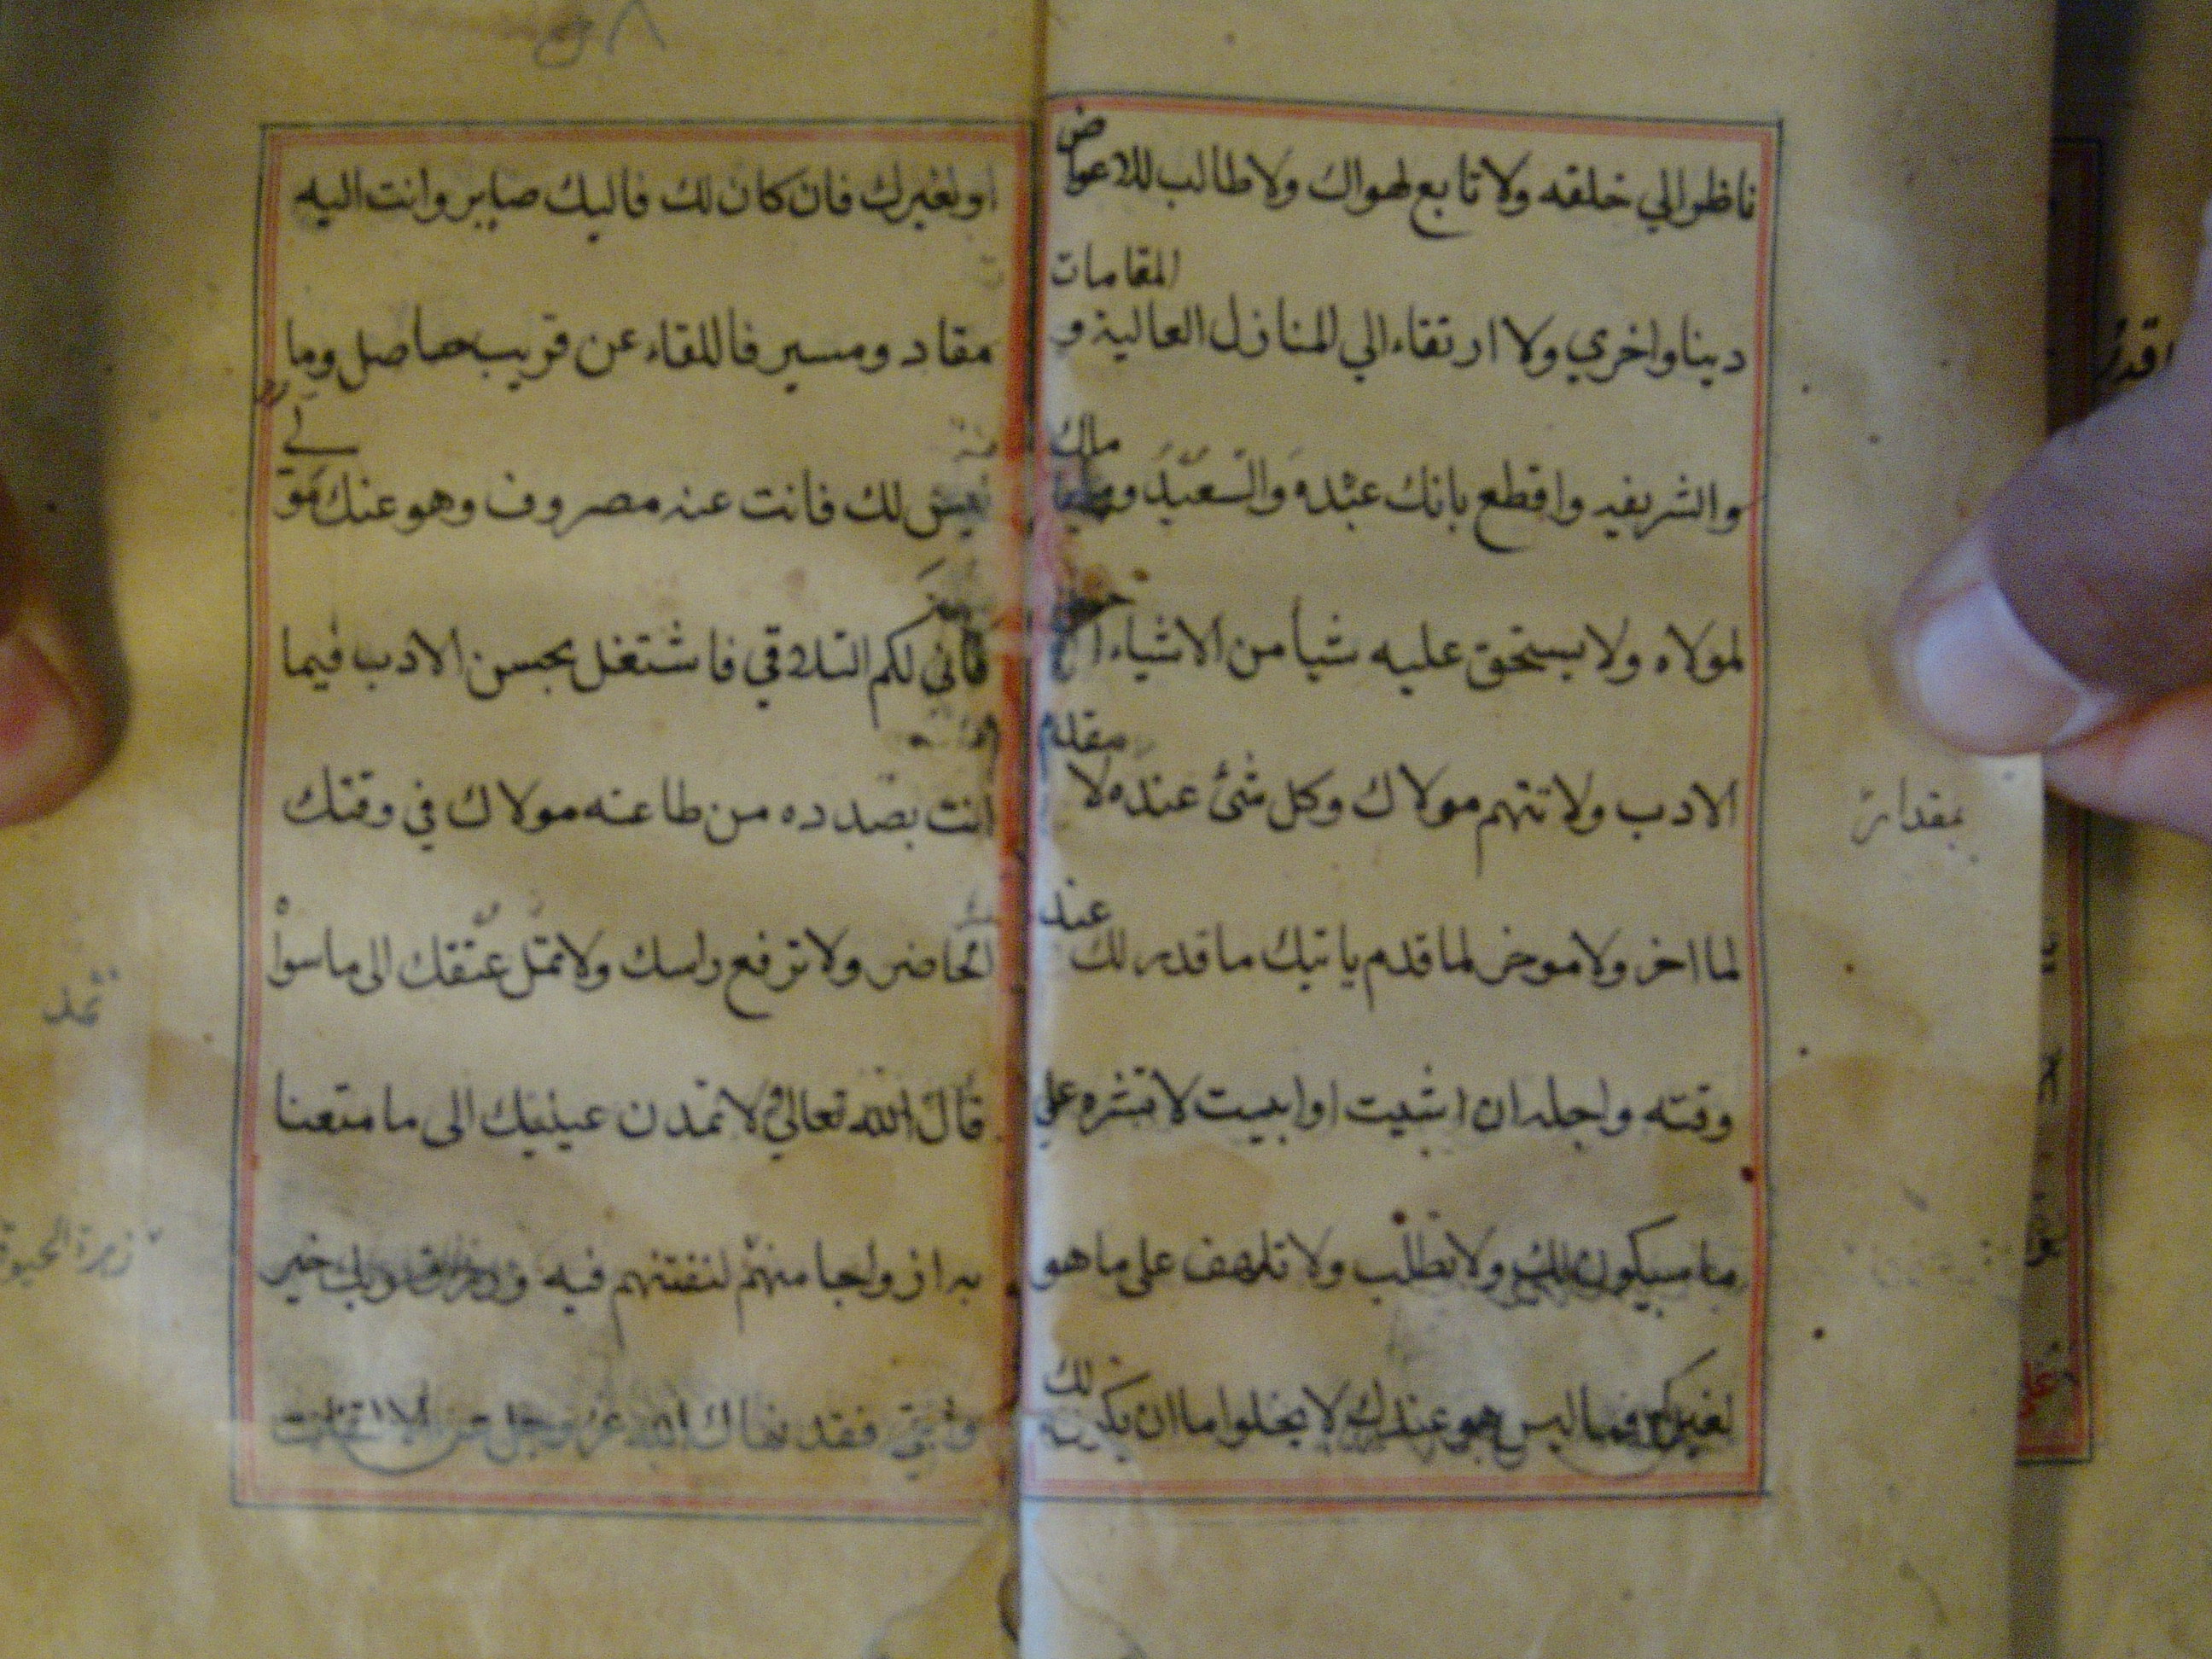 ناظرا الي خلقه ولا تابع لهواك ولا طالب للاعواض
دينا واخري ولا ارتقاء الي المنازل العالية و المقامات
والشريفه واقطع بانك عبده والعبيد وما ملك
لمولاه ولا يستحق عليه شيا من الاشياء احسن
الادب ولا تتهم مولاك وكل شئ عنده لا مقدم
لما اخر ولا موخر لما قدم ياتيك ما قدر لك عند
وقته واجله ان اشيت او ابيت لا تشره علي
ما سيكون لك ولا تطلب ولا تلهف على ما هو
لغيرك فما ليس هو عندك لا يخلوا اما ان يكون لك
بمقدار
او لغيرك فان كان لك فاليك صاير وانت اليه
مقاد ومسير فاللقاء عن قريب حاصل وما
ليس لك فانت عنه مصروف وهو عنك مولي
فاني لكم التلاقي فاشتغل بحسن الادب فيما
انت بصدده من طاعته مولاك في وقتك
الحاضر ولا ترفع راسك ولا تمل عنقك الى ما سواه
قال الله تعالي لا تمدن عينيك الى ما متعنا
به ازواجا منهم لنفتنهم فيه ورزق ربك خير
وابقى فقد نهاك الله عز وجل عن الالتفات
تمد
زهرة الحيوة